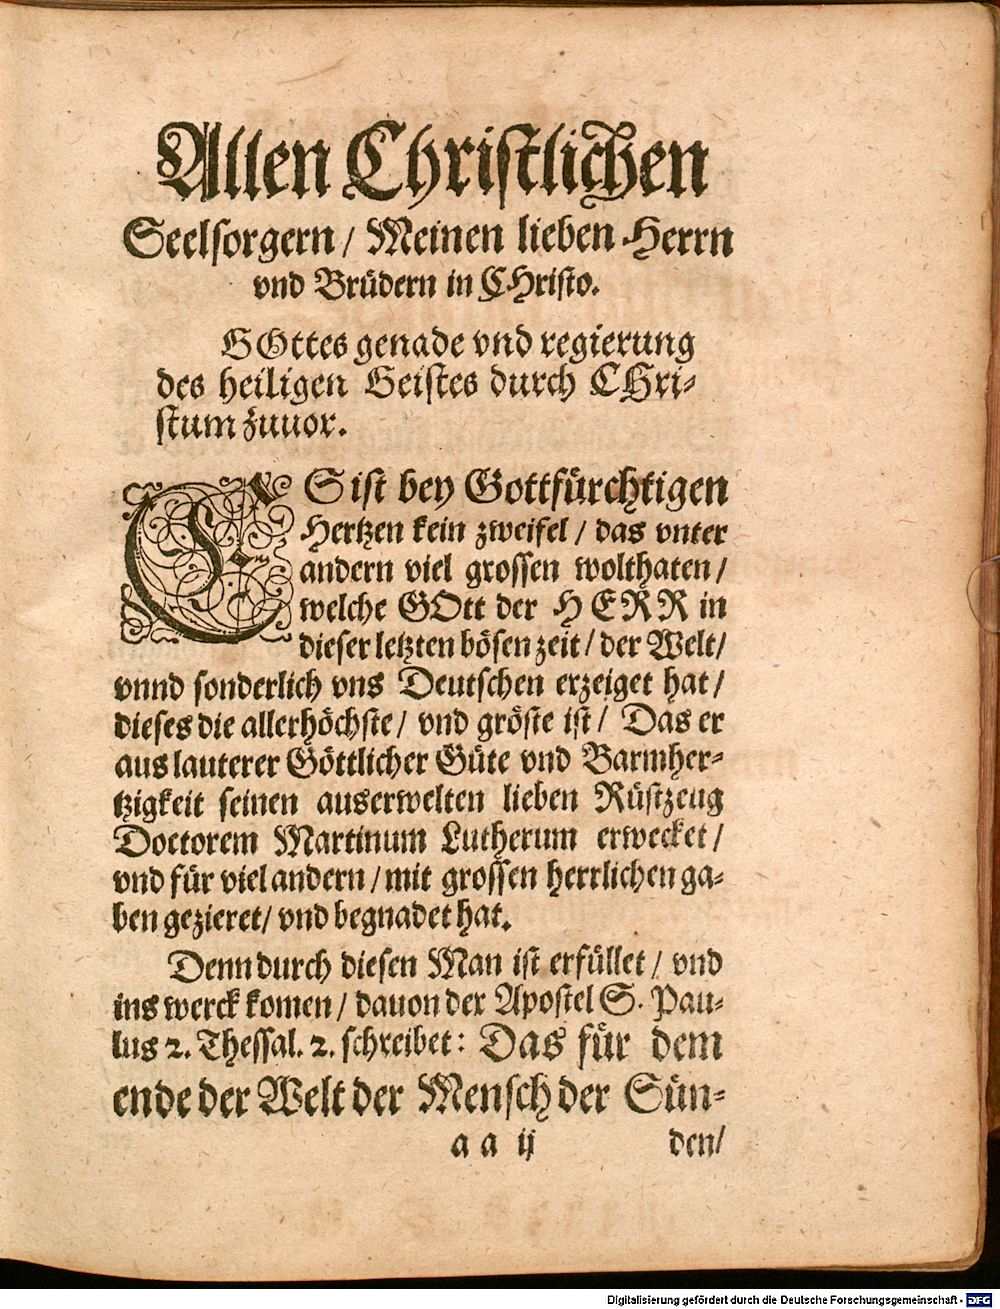 Allen Christlichen
Seelsorgern / Meinen lieben Herrn
vnd Brüdern in CHristo.
GOttes genade vnd regierung
des heiligen Geistes durch CHri-
stum zuuor.
ES ist bey Gottfürchtigen
Hertzen kein zweifel / das vnter
andern viel grossen wolthaten /
welche GOtt der HERR in
dieser letzten bösen zeit / der Welt /
vnnd sonderlich vns Deutschen erzeiget hat /
dieses die allerhöchste / vnd gröste ist / Das er
aus lauterer Göttlicher Güte vnd Barmher-
tzigkeit seinen auserwelten lieben Rüstzeug
Doctorem Martinum Lutherum erwecket /
vnd für viel andern / mit grossen herrlichen ga-
ben gezieret / vnd begnadet hat.
Denn durch diesen Man ist erfüllet / vnd
ins werck komen / dauon der Apostel S. Pau-
lus 2. Thessal. 2. schreibet: Das für dem
ende der Welt der Mensch der Sün-
a a ij den /
Digitalisierung gefördert durch die Deutsche Forschungsgemeinschaft - DFG